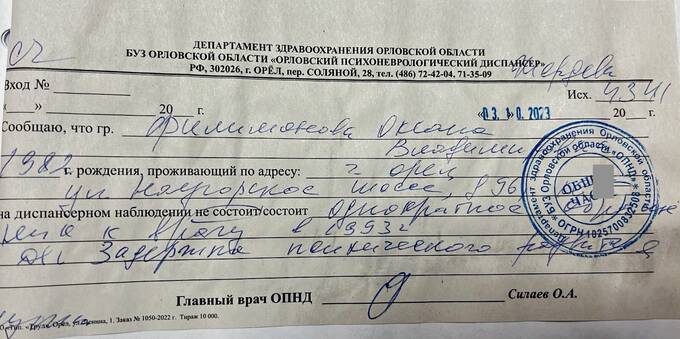 ДЕПАРТАМЕНТ ЗДРАВООХРАНЕНИЯ ОРЛОВСКОЙ ОБЛАСТИ
БУЗ ОРЛОВСКОЙ ОБЛАСТИ «ОРЛОВСКИЙ ПСИХОНЕВРОЛОГИЧЕСКИЙ ДИСПАНСЕР»
РФ, 302026, г. ОРЁЛ, пер. СОЛЯНОЙ, 28, тел. (486) 72-42-04. 71-35-09
Вход № Исх. 4341
« » 20 г. «03.10.2023 20 г.
Сообщаю, что гр. Филимонова Оксана
Владими
1982 г. рождения, проживающий по адресу: г. Орел
ул. Наугорское шоссе, д 96
на диспансерном наблюдении не состоит/состоит однократное
к врачу в 1993г
Задержка психического развития
Главный врач ОПНД Силаев О.А.
Заказ № 1050-2022 г. Тираж 10 000.
Департамент здравоохранения Орловской области
БУЗ Орловской области «ОПНД»
ОГРН 1025700832508